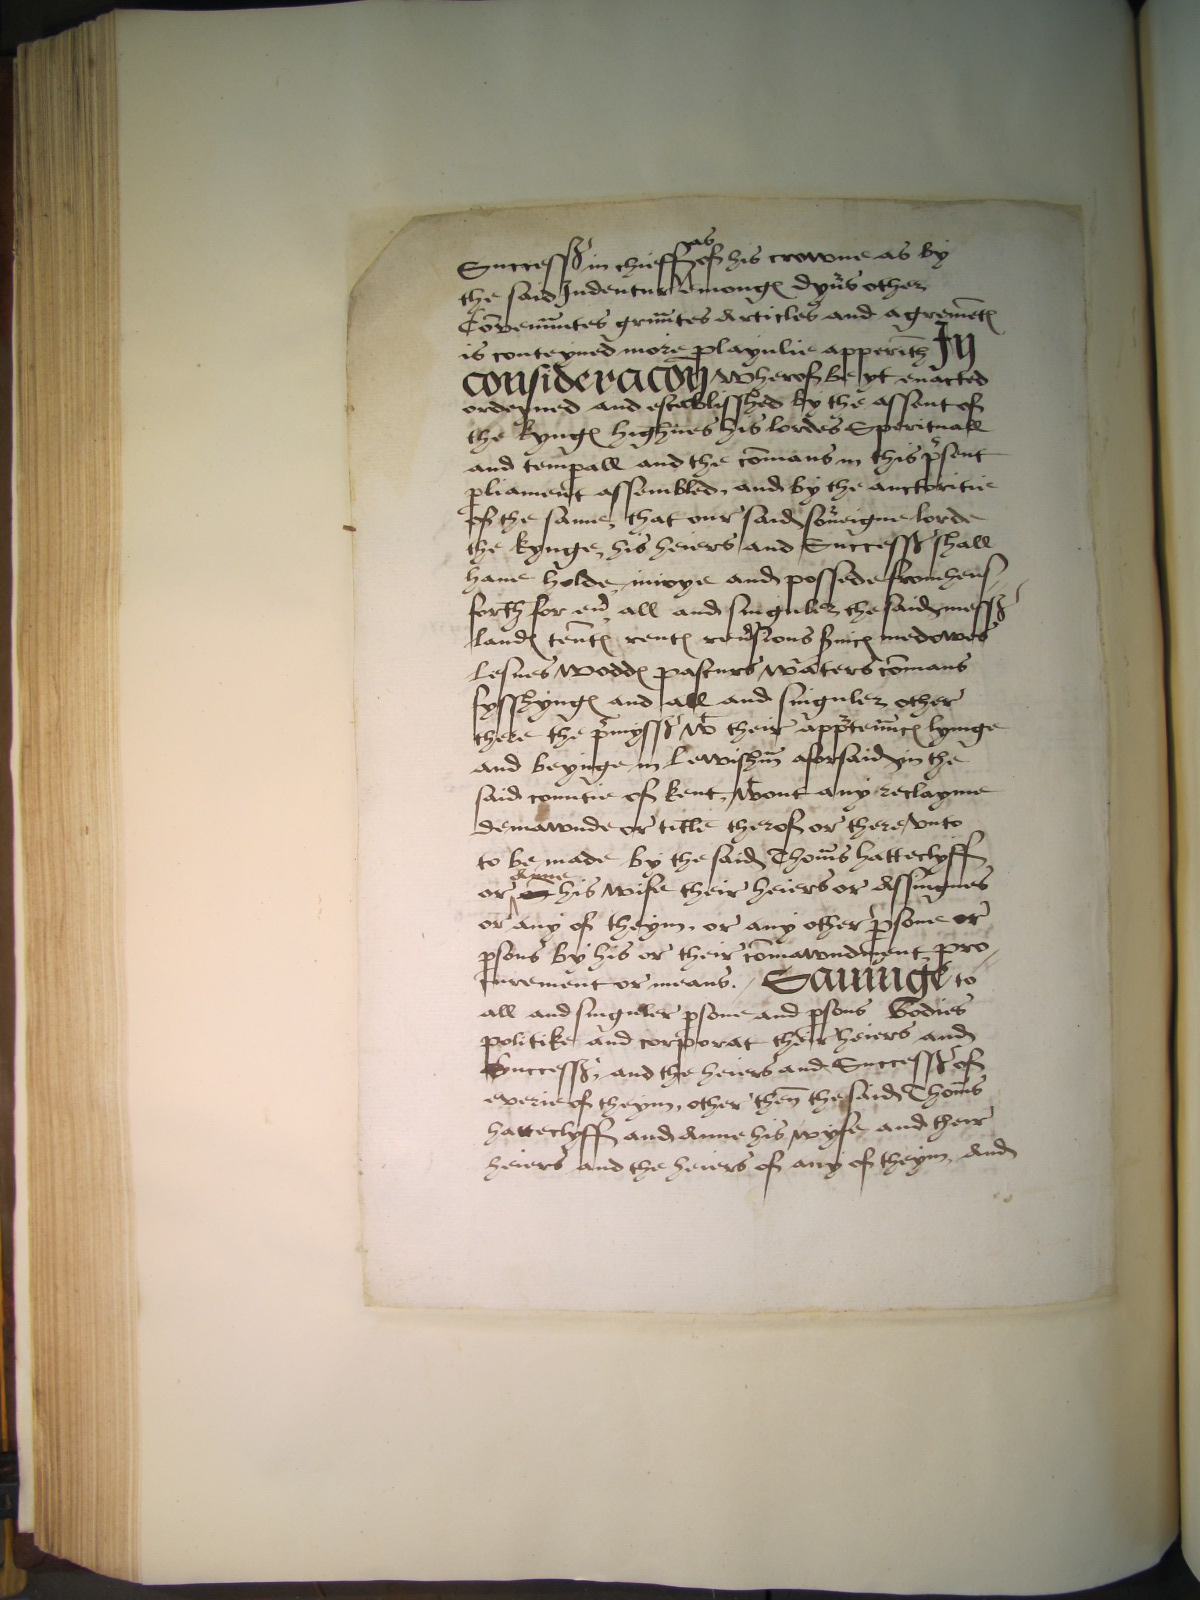 Success in chieff as of his crowne as by
the said Indentur emonges dyu's other
Covenntes grnntes Articles and agremētes
is conteyned more playnlie apperith In
consideracōn wherof be yt enacted
ordeyned and establisshed by the assent of
the kynges highnes his lordes Sperituall
and tempall and the cōmans in this p'sent
pliament assembled, and by the auctoritie
of the same, that our said sou'eigne lorde
the kynge, his heiers and Success' shall
haue holde inioye and possede from hens
forth for eu' all and singuler the said mess'
landes tentes rentes reu'sions s'uices medowes
Lesues woddes pasturs waters cōmans
fysshynges and all and singuler other
there the p'myss' wt their app'tenncs lyinge
and beynge in Lewishm aforsaid in the
said countie of kent, wtout any reclayme
demawnde or title therof or there vnto
to be made by the said Thoms hatteclyff
or Anne his wife their heiers or Assingnes
or any of theym, or any other psone or
psons by his or their cōmawndment pro-
curement or means. / Sauinge to
all and singuler psone and psons Bodies
politike and corporat their heiers and
Success', and the heiers and Success' of
everie of theym, other then the said Thoms
hatteclyff and Anne his wyfe and their
heiers and the heiers of any of theym, And